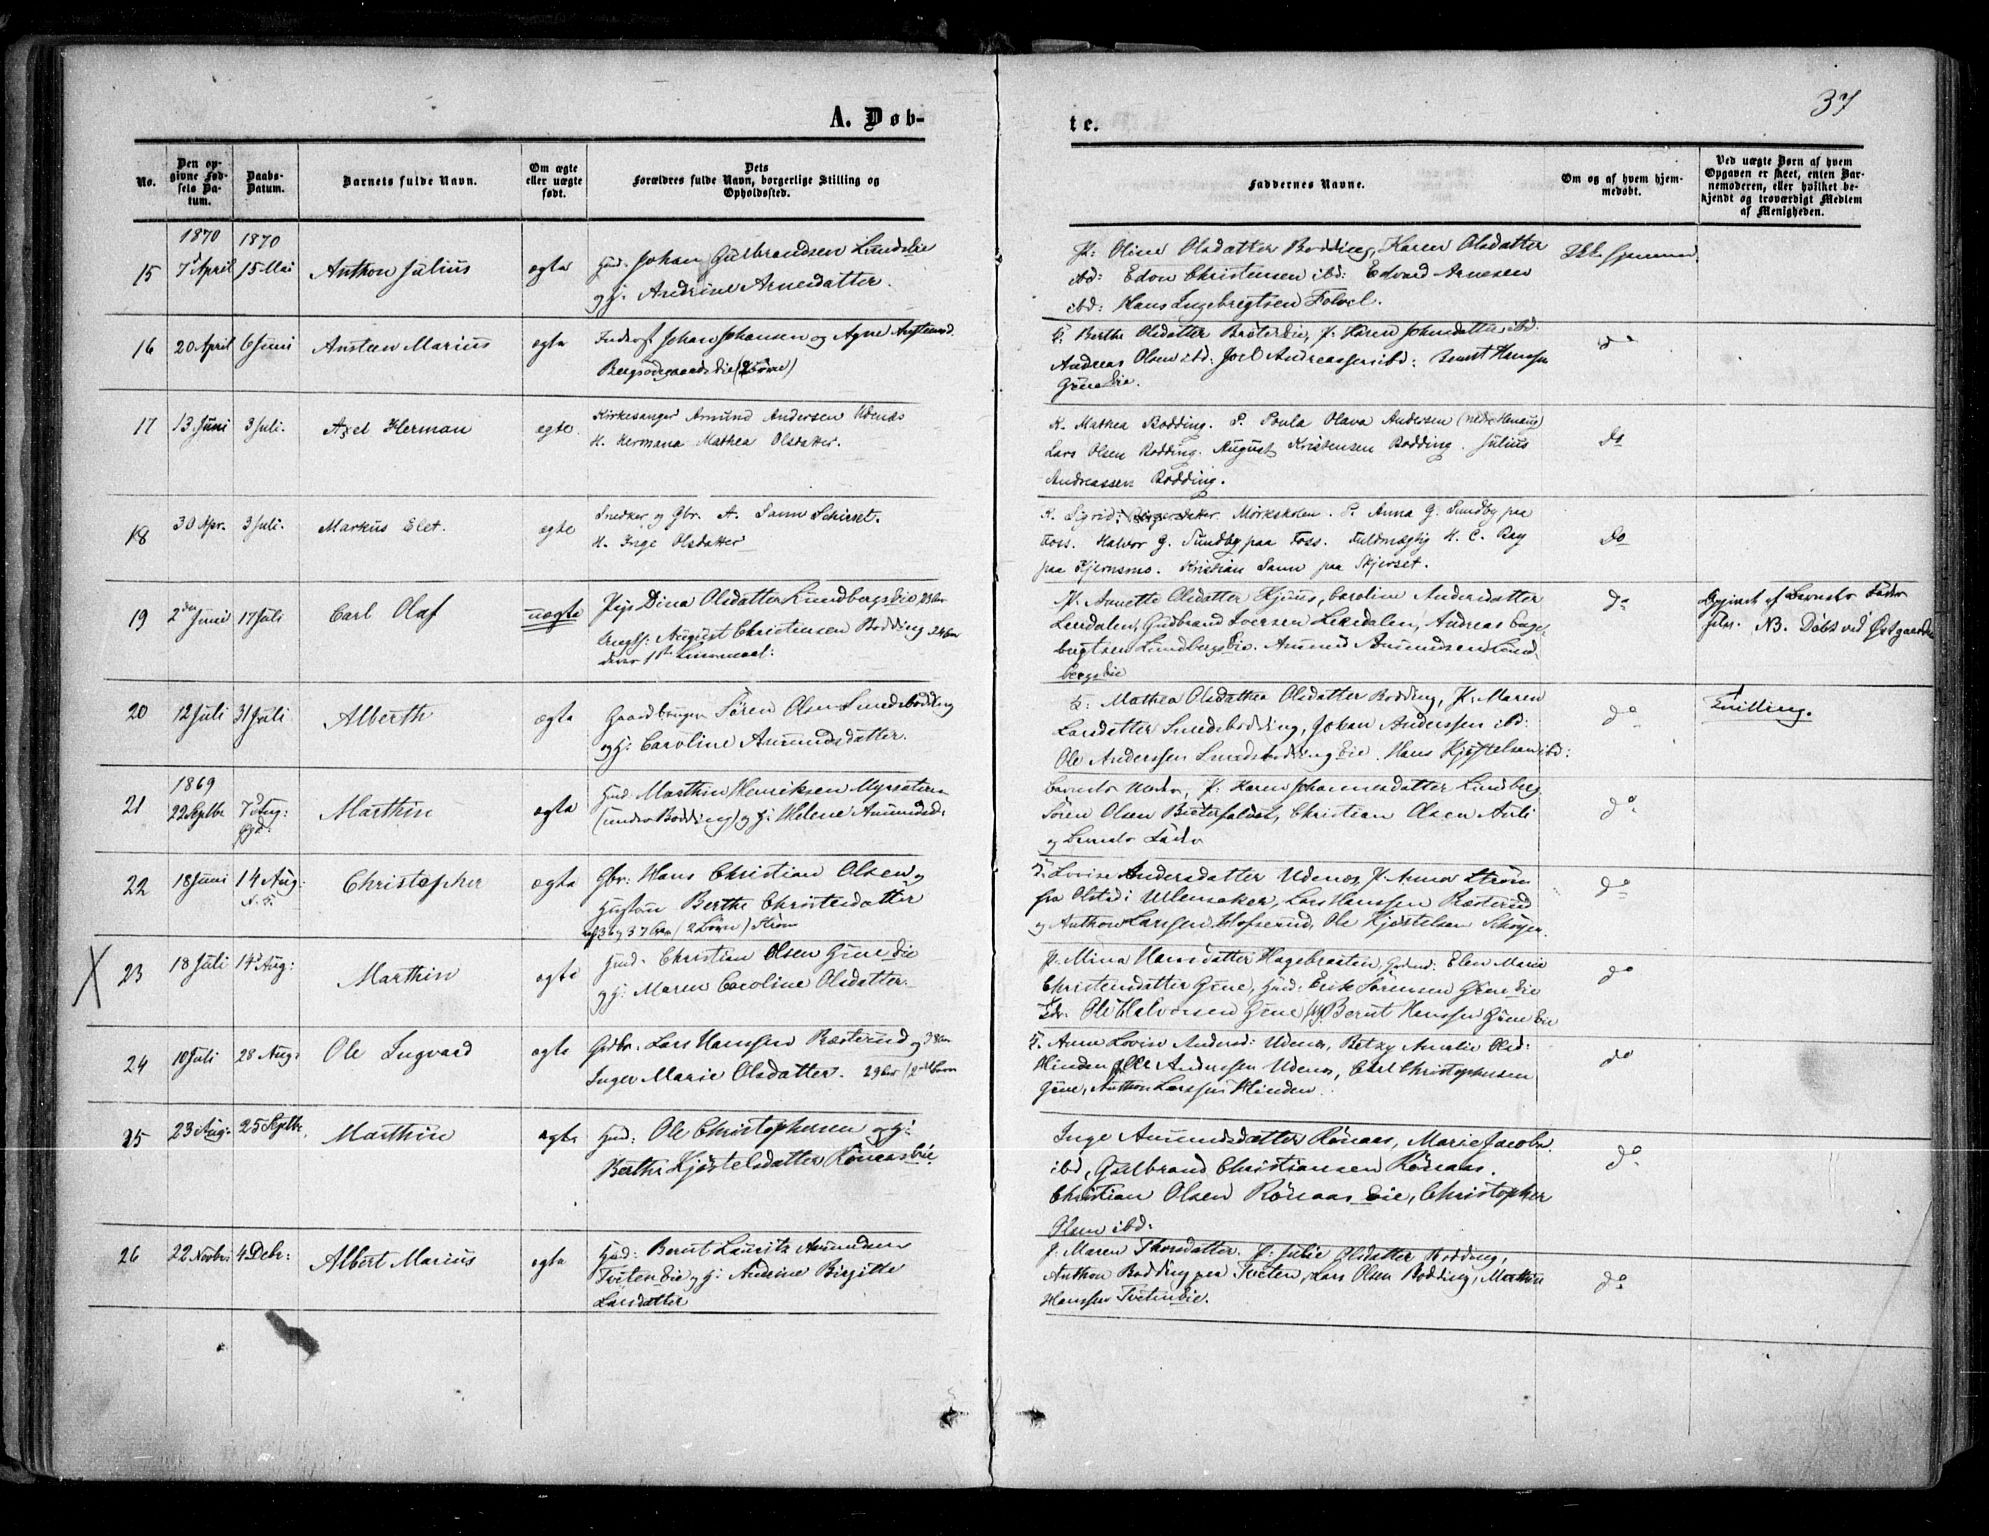 37
A. Døb-
te.
No.
Den op-
givne Fød-
sels Da-
tum.
Daabs-
Datum.
Barnets fulde Navn.
Om ægte
eller uægte
født.
Dets
Forældres fulde Navn, borgerlige Stilling og
Opholdssted.
Faddernes Navne.
Om og af hvem hjem-
medøbt.
Ved uægte Børn af hvem
Opgaven er skeet, enten Bar-
nemoderen, eller hvilket be-
kjendt og troværdigt Medlem
af Menigheden.
1870
1870
15 7 April 15 Mai Anthon Julius ægte Hud. Johan Gulbrandsen
og H. Andrine Arnesdatter.
P. Oline Olsdatter Bodding, Karen Olsdatter
ibd: Edvin Christensen ibd: Edvard Arnesen
ibd: Hans Ingebregtsen
16 20 April 6 Juni Austen Marius ægte Johan Johansen og Agne
Bergsødegaardseie (2 Børn)
Berthe Olsdatter Bråtereie, P. Karen Johnsdatter ibd.
Andreas Olsen ibd: Joel Andreassen ibd: Bernt Hanssen
Gineeie.
do
17 13 Juni 3 Juli. Axel Herman egte. Kirkesanger Amund Andersen Udenæs
H. Hermana Mathea Olsdatter.
K. Mathea Bodding. P. Paula Olava Andersen
Lars Olsen Bodding. August Kristensen Bodding. Julius
Andreassen Bodding.
do
18 30 Apr. 3 Juli. Markus Elet. egte Snedker og Gbr. A. Sann Schirset.
H. Inge Olsdatter
K. Sigrid Mørkskolen. P. Anna G. Sundby paa
Foss. Halvor G. Sundby paa Foss. Fuldmægtig H. C. Bay
paa Kjernsmo. Kristian Sann paa Skjerset.
do
19 2den Juni 17 Juli Carl Olaf uægte Pige Dina Olsdatter Lundbergseie 23 Aar
Ungk. August Christensen Bodding 24 Aar
P. Annette Olsdatter Hjuus, Caroline Andersdatter
Lerdalen, Gudbrand Iversen Leirdalen, Andreas Enge-
bregtsen Lundbergseie. Amund Amundsen Lund-
bergseie
do
Opgivet af Barnets Fader
NB. Døbt ved Østgaarden
20 12 Juli 31 Juli Alberth ægte Gaardbruger Sören Olsen Smedsbodding
og H. Caroline Amundsdatter.
K: Mathea Olsdatter Bodding, P. Maren
Larsdatter Smedsbodding, Johan Anderssen ibd:
Ole Anderssen Smedsboddingeie. Hans Kjøstelsen ibd:
do
Tvilling.
1869
21 22 Septbr 7 Aug: Marthin ægte Hud Marthin Henriksen
(under Bodding) og H: Helene Amundsd:
Barnets Moder, P. Karen Johannesdatter Lundberg
Sören Olsen Christian Olsen
og Barnets Fader
do
22 18 Juni 14 Aug: Christopher ægte Gbr: Hans Christian Olsen og
Hustru Berthe Christensdatter
36 og 37 Aar (2 Børn) Strøm
K. Lovise Andersdatter Udenæs, P. Anna Strøm
fra Olstad i Ullensaker, Lars Hanssen Ræsterud
og Anthon Larssen Ole Kjøstelsen
do
X
23 18 Juli 14 Aug: Marthin ægte Hud. Christian Olsen Gineeie
og H: Maren Caroline Olsdatter.
P. Mina Hansdatter Hagebraaten, Elen Marie
Christensdatter Gine, Hud: Erik Sørensen Gineeie
Ole Halvorsen Gine, Bernt Hanssen Gineeie
do
24 10 Juli 28 Aug: Ole Ingvard ægte Gdbr. Lars Hanssen Ræsterud og 38 Aar
Inger Marie Olsdatter. 29 Aar
K. Anne Lovise Andersd: Udenæs, Betzy Amalie Olsd:
Hinden, Ole Anderssen Udenæs, Carl Christophersen
Gine, Anthon Larssen Hinden.
do
25 23 Aug: 25 Septbr. Marthin ægte Hud: Ole Christophersen og H:
Berthe Kjøstelsdatter Rönaaseie.
Inge Amundsdatter Rönaas, Marie Jacobs.
ibd, Gulbrand Christiansen Rönaas.
Christian Olsen Rönaaseie, Christopher
Olsen ibd:
do
26 22 Novbr 4 Debr: Albert Marius ægte Hud: Bernt Lauritz Amundsen
Tveteneie og H: Andrine Birgitte
Larsdatter
P. Maren Thorsdatter. P: Julie Olsdatter Bodding,
Anthon Bodding paa Tveten, Lars Olsen Bodding, Mathias
Hanssen Tveteneie.
do